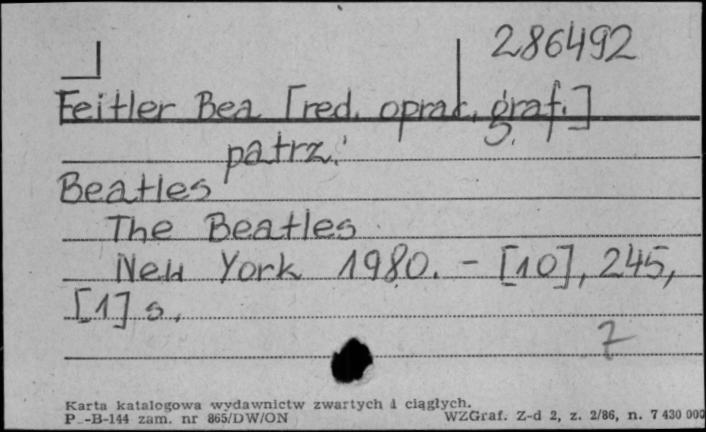 286492
Feitler Bea [red. oprac. graf.]
patrz:
Beatles
The Beatles
New York 1980. - [10], 245,
[1] s.
7
Karta katalogowa wydawnictw zwartych i ciągłych.
P-B-144 zam. nr 865/DW/ON WZGraf. Z-d 2, z. 2/86, n. 7 430 000